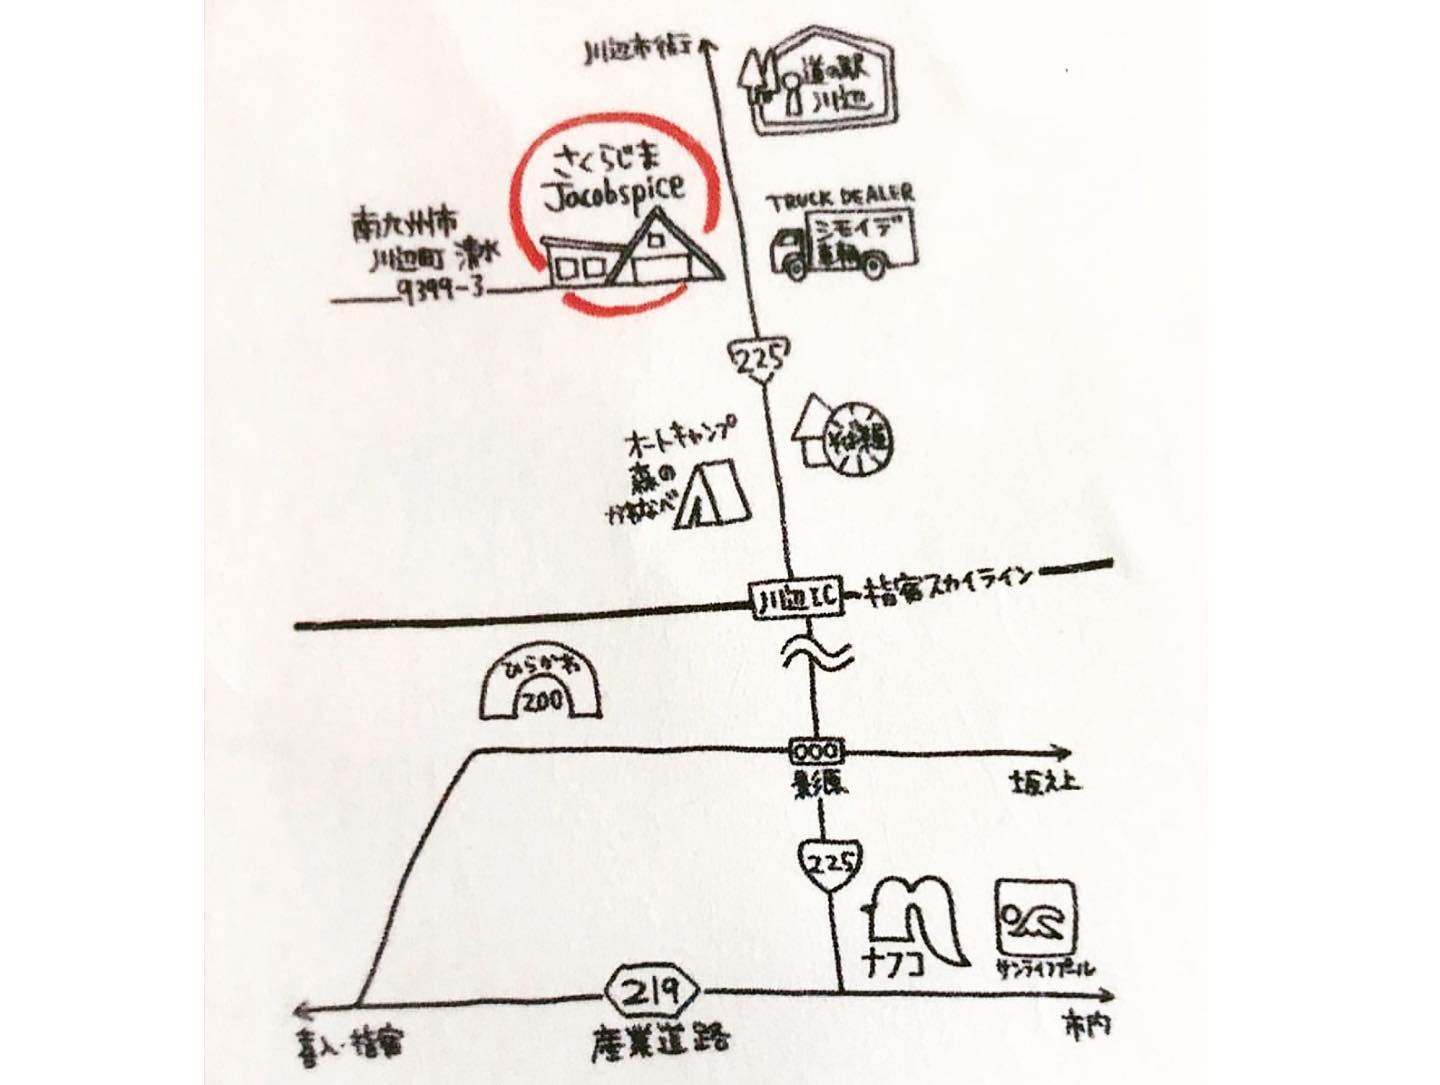 川辺市街
道の駅
川辺
さくらじま
Jacobspice
TRUCK DEALER
シモイデ
車輌
南九州市
川辺町 清水
9399-3
225
オートキャンプ
森の
かわなべ
そば茶屋
川辺IC
指宿スカイライン
ひらかわ
200
影原
坂之上
225
ナフコ
サンライフプール
219
産業道路
喜入・指宿
市内